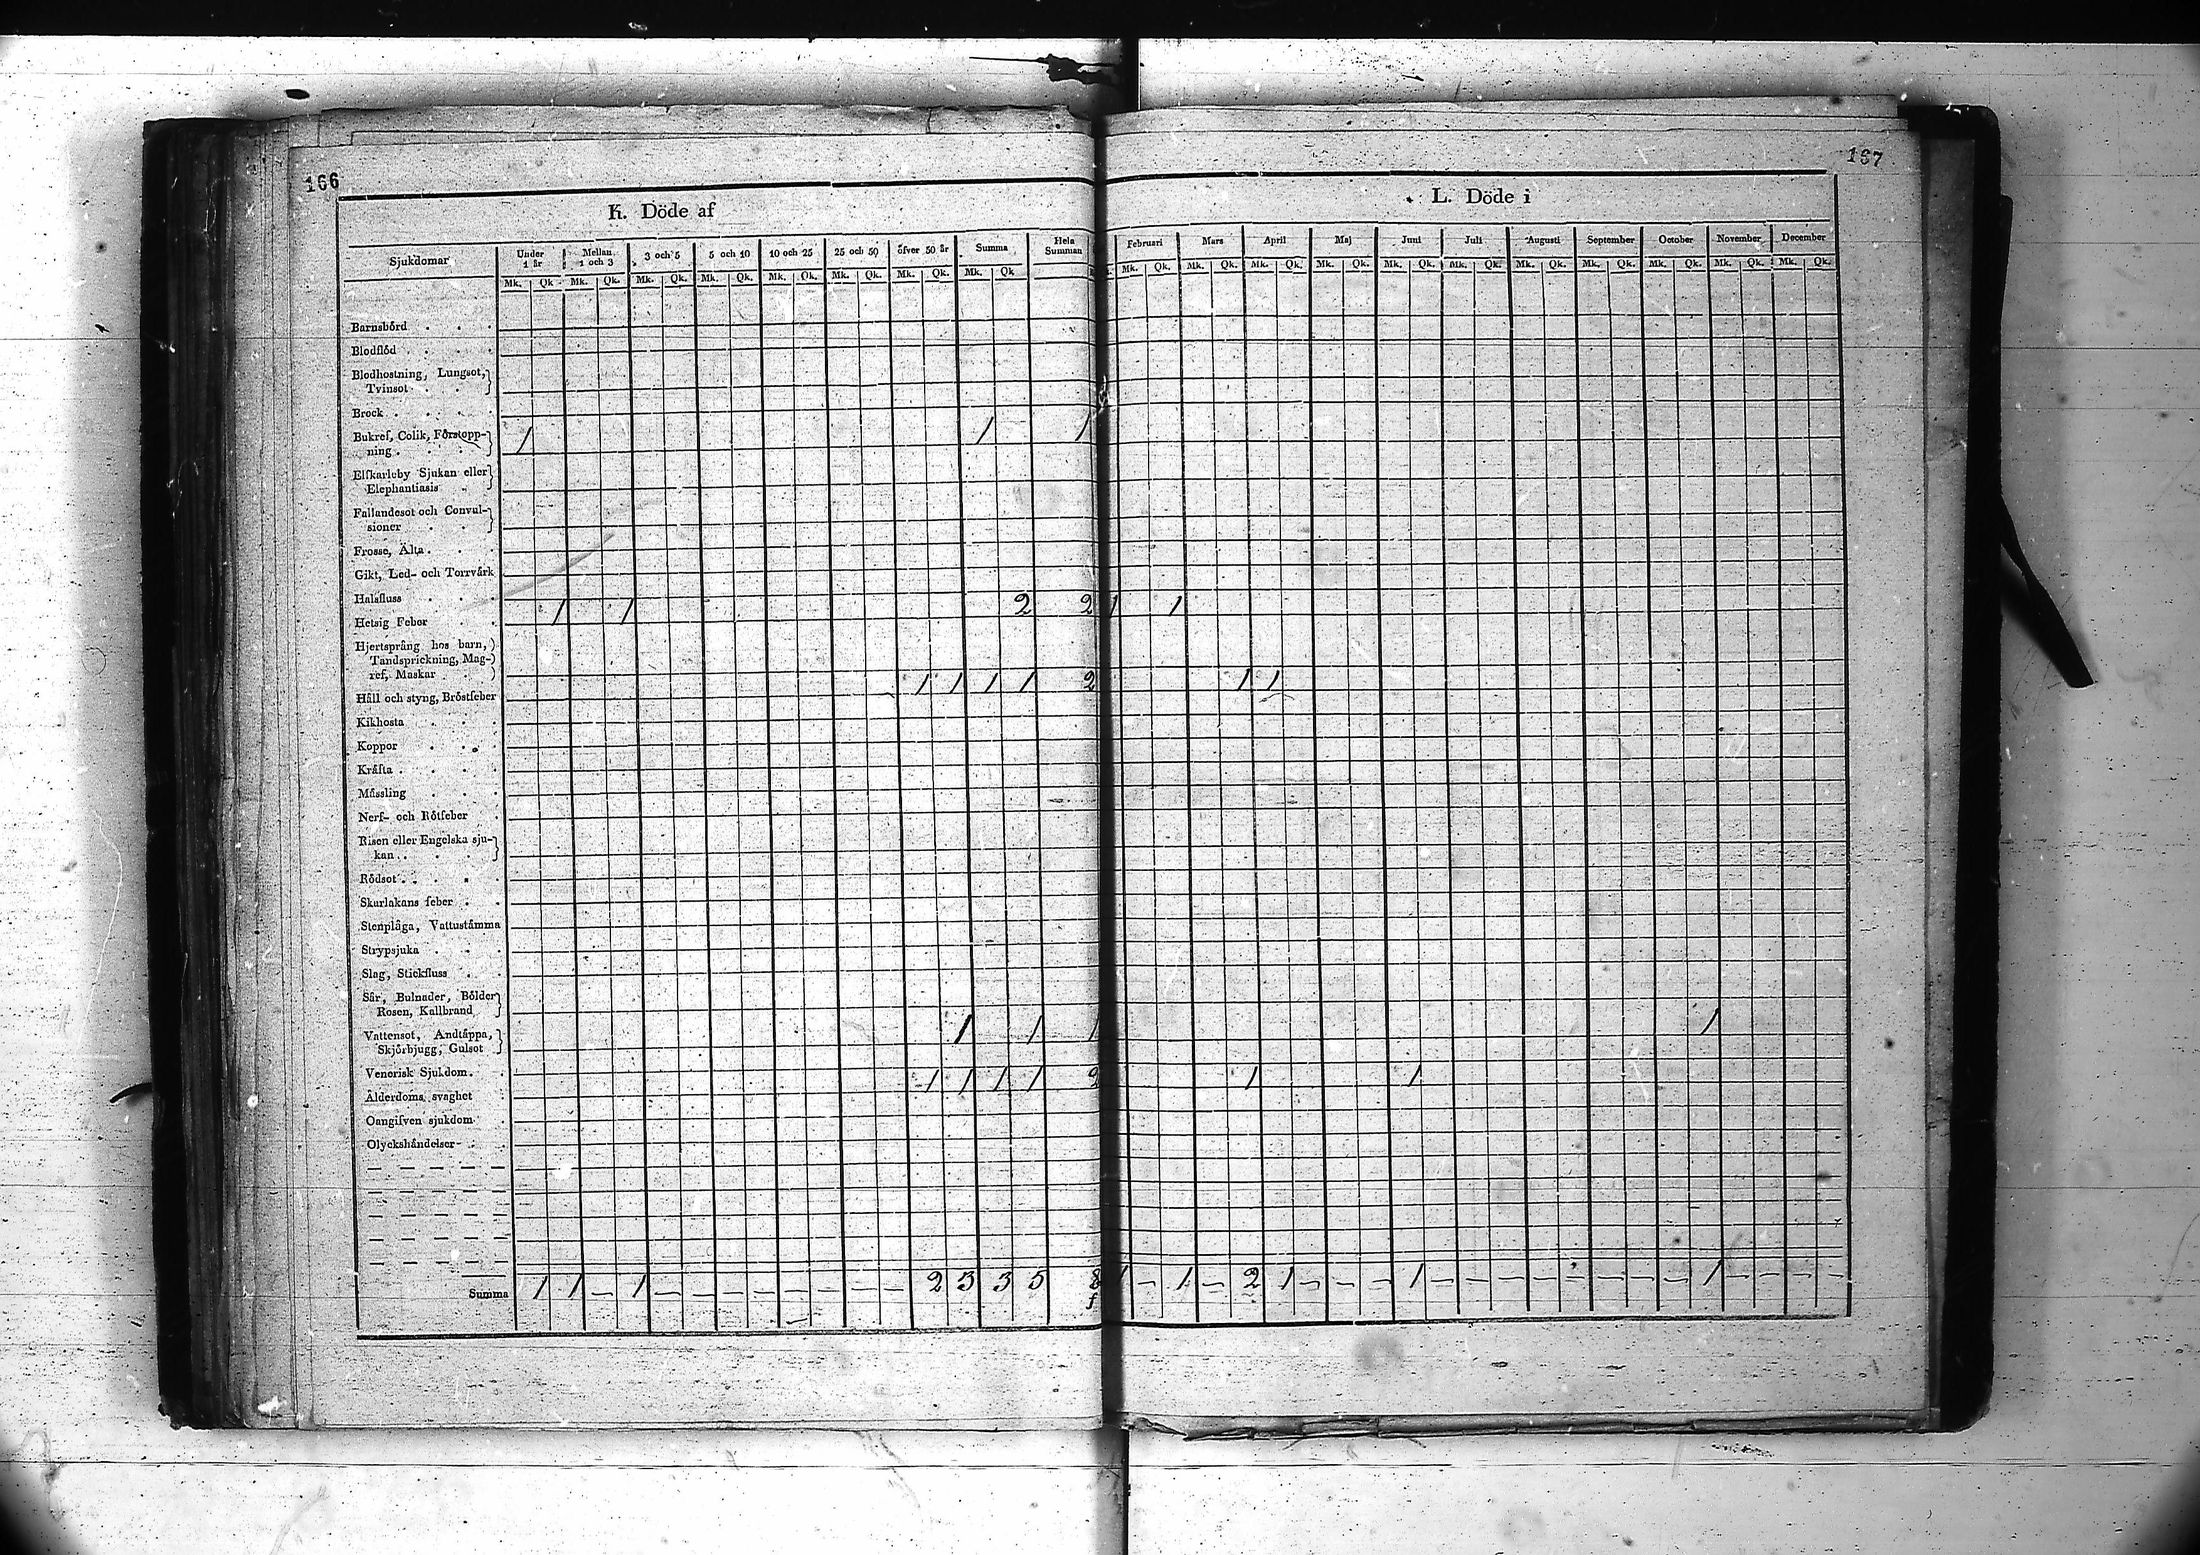 166
K. Döde af
Sjukdomar Under 1 år Mellan 1 och 3 3 och 5 5 och 10 10 och 25 25 och 50 öfver 50 år Summa Hela Summan
Mk. Qk. Mk. Qk. Mk. Qk. Mk. Qk. Mk. Qk. Mk. Qk. Mk. Qk. Mk. Qk.
Barnsbörd . . .
Blodflöd . . . .
Blodhostning, Lungsot,
Tvinsot . .
Brock . . . .
Bukref, Colik, Förstopp-
ning . . . . 1 1 1
Elfkarleby Sjukan eller
Elephantiasis .
Fallandesot och Convul-
sioner . .
Frosse, Älta . . .
Gikt, Led- och Torrvärk
Halsfluss . . .
Hetsig Feber . . 1 1 2 2
Hjertsprång hos barn,
Tandsprickning, Mag-
ref, Maskar .
Håll och styng, Bröstfeber 1 1 1 1 2
Kikhosta . . .
Koppor . . .
Kräfta . . . .
Mässling . . .
Nerf- och Rötfeber .
Risen eller Engelska sju-
kan . . . .
Rödsot . . . .
Skarlakans feber . .
Stenplåga, Vattustämma
Strypsjuka . . .
Slag, Stickfluss . .
Sår, Bulnader, Bölder
Rosen, Kallbrand
Vattensot, Andtäppa,
Skjörbjugg, Gulsot 1 1 1
Venerisk Sjukdom . .
Ålderdoms svaghet 1 1 1 1 2
Oangifven sjukdom .
Olyckshändelser . .
— — — — — —
— — — — — —
— — — — — —
— — — — — —
— — — — — —
Summa 1 1 — 1 — — — — — — — — 2 3 3 5 8
167
L. Döde i
Februari Mars April Maj Juni Juli Augusti September October November December
Mk. Qk. Mk. Qk. Mk. Qk. Mk. Qk. Mk. Qk. Mk. Qk. Mk. Qk. Mk. Qk. Mk. Qk. Mk. Qk. Mk. Qk.
1 1
1 1
1
1 1
1 — 1 — 2 1 — — — 1 — — — — — — — — 1 — — — —